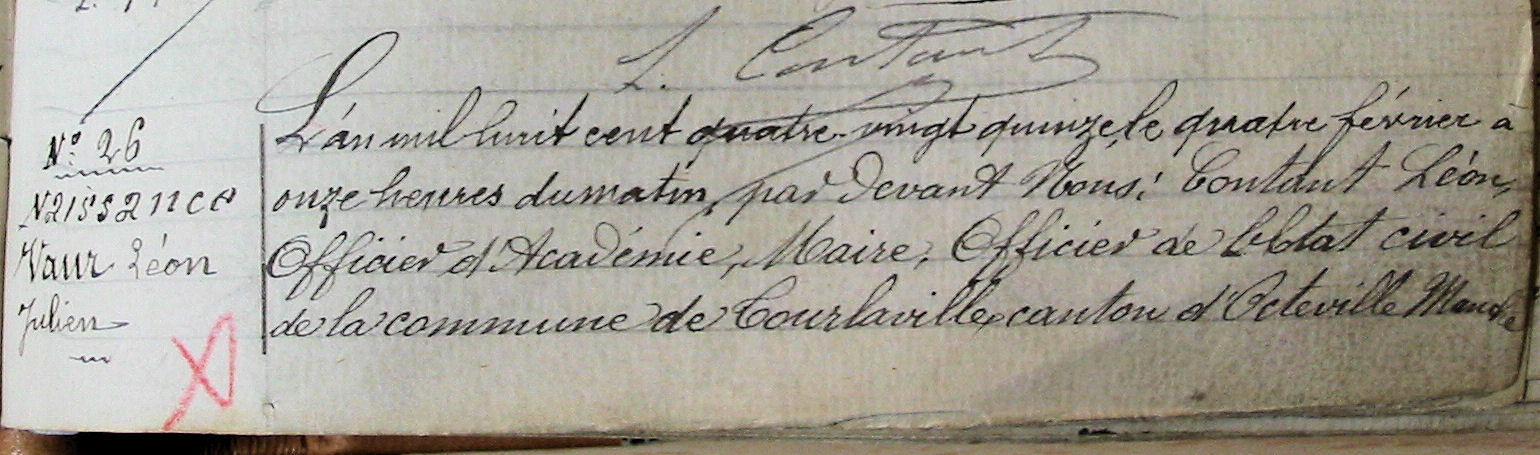 L. Contant
N° 26
Naissance
Vaur Léon
Julien
L'an mil huit cent quatre-vingt quinze, le quatre février à
onze heures du matin, par devant Nous: Contant Léon,
Officier d'Académie, Maire, Officier de l'Etat civil
de la commune de Tourlaville, canton d'Octeville Manche